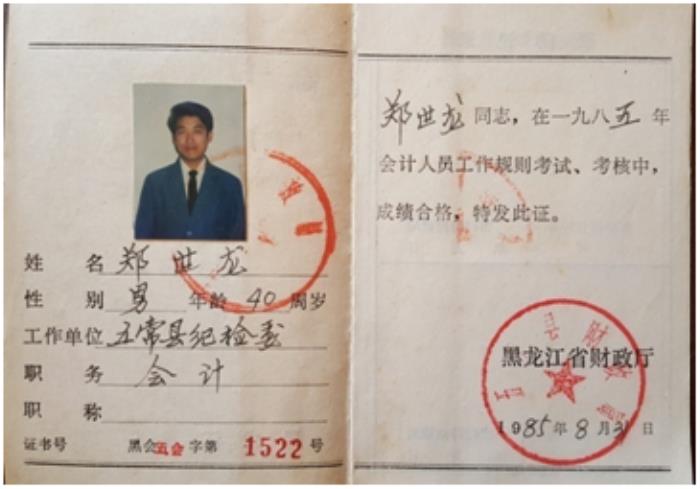 姓 名 郑世龙
性 别 男 年龄 40 周岁
工作单位 五常县纪检委
职 务 会计
职 称
证书号 黑会五会字第1522号
郑世龙同志，在一九八五年
会计人员工作规则考试、考核中，
成绩合格，特发此证。
黑龙江省财政厅
1985年8月31日